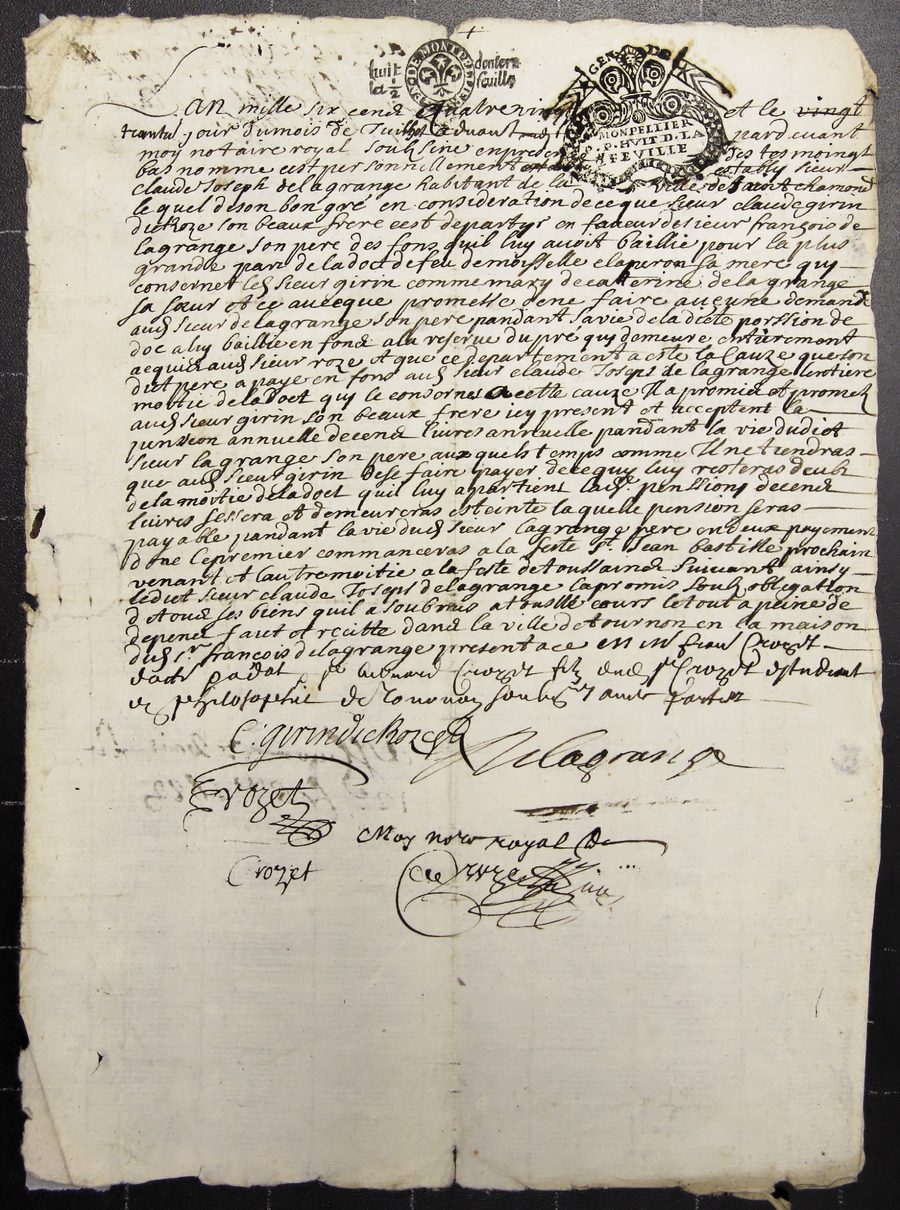 huit d ½ DE MONTP deniers feuille
GEN DE MONPELLIER P.P. HUIT. D. LA FEVILLE
Lan mille six cend quatre vingt et le vingt
jour dumois de Juillet avant pard evant
moy notaire royal soubsine en presen des tesmoingt
bas nomme cest personnellement estably sieur
claude Joseph delagrange habitant de la ville de saoit chamond
le quel deson bon gré en consideration de ce que sieur claude girin
dict Roze son beaux frere cest departys en faveur de sieur françois de
lagrange son pere des fons quil luy avoit baillie pour la plus
grande part de la doct de feu demoisselle elaperon sa mere quy
consernet led sieur girin comme mary de catterine de la grange
sa sœur et ce avecque promesse dene faire aucune demande
aud sieur de lagrange son pere pandant sa vie de la dicte porssion de
doc a luy baillie en fond a la reserve du pré quy demeure entierement
acquis aud sieur roze et que ce departement a este la cauze que son
dict pere a paye en fons aud sieur claude Joseps de lagrange lentiere
moitie de la doct quy le consernet a cette cauze Il a promis et promet
aud sieur girin son beaux frere icy present et acceptent la
penssion annuelle de cend livres annuelle pandant la vie dudict
sieur lagrange son pere aux quels temps comme Il netiendras
que aud sieur girin de se faire payer de ce quy luy resteras deub
de la moitie de la doct quil luy apartient lad. penssiony de cend
livres sessera et demeureras esteinte la quelle pension seras
payable pandant la vie dud sieur lagrange pere en deux payement
dont le premier commanceras a la feste st. Jean bastiste prochain
venant et lautre moitie a la feste de toussaind suivant ainsy
ledict sieur claude Joseps de lagrange la promis soub obligation
de tous ses biens quil a soubmis a tous cours le tout a peine de
depend faict et recitte dand la ville de tournon en la maison
dud sr. françois de lagrange present a ce Crozet
Crozet fils dud sr Crozet estudiant
en philosophie de tournon soubs partie
C. girin dict Roze
Delagrange
Crozet
Moy nore royal
Crozet